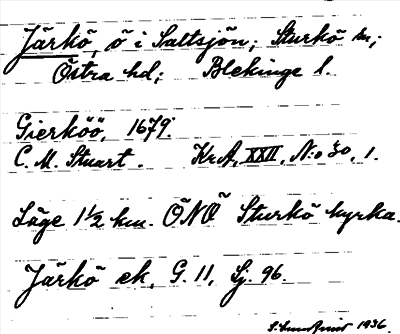 Järkö, ö i Saltsjön; Sturkö sn;
Östra hd; Blekinge l.
Gierköö, 1679.
C. M. Stuart. KrA, XXII, N:o 30, 1.
Läge 1 1/2 km. ÖNÖ Sturkö kyrka.
Järkö ek, G. 11, Sj. 96.
1936.